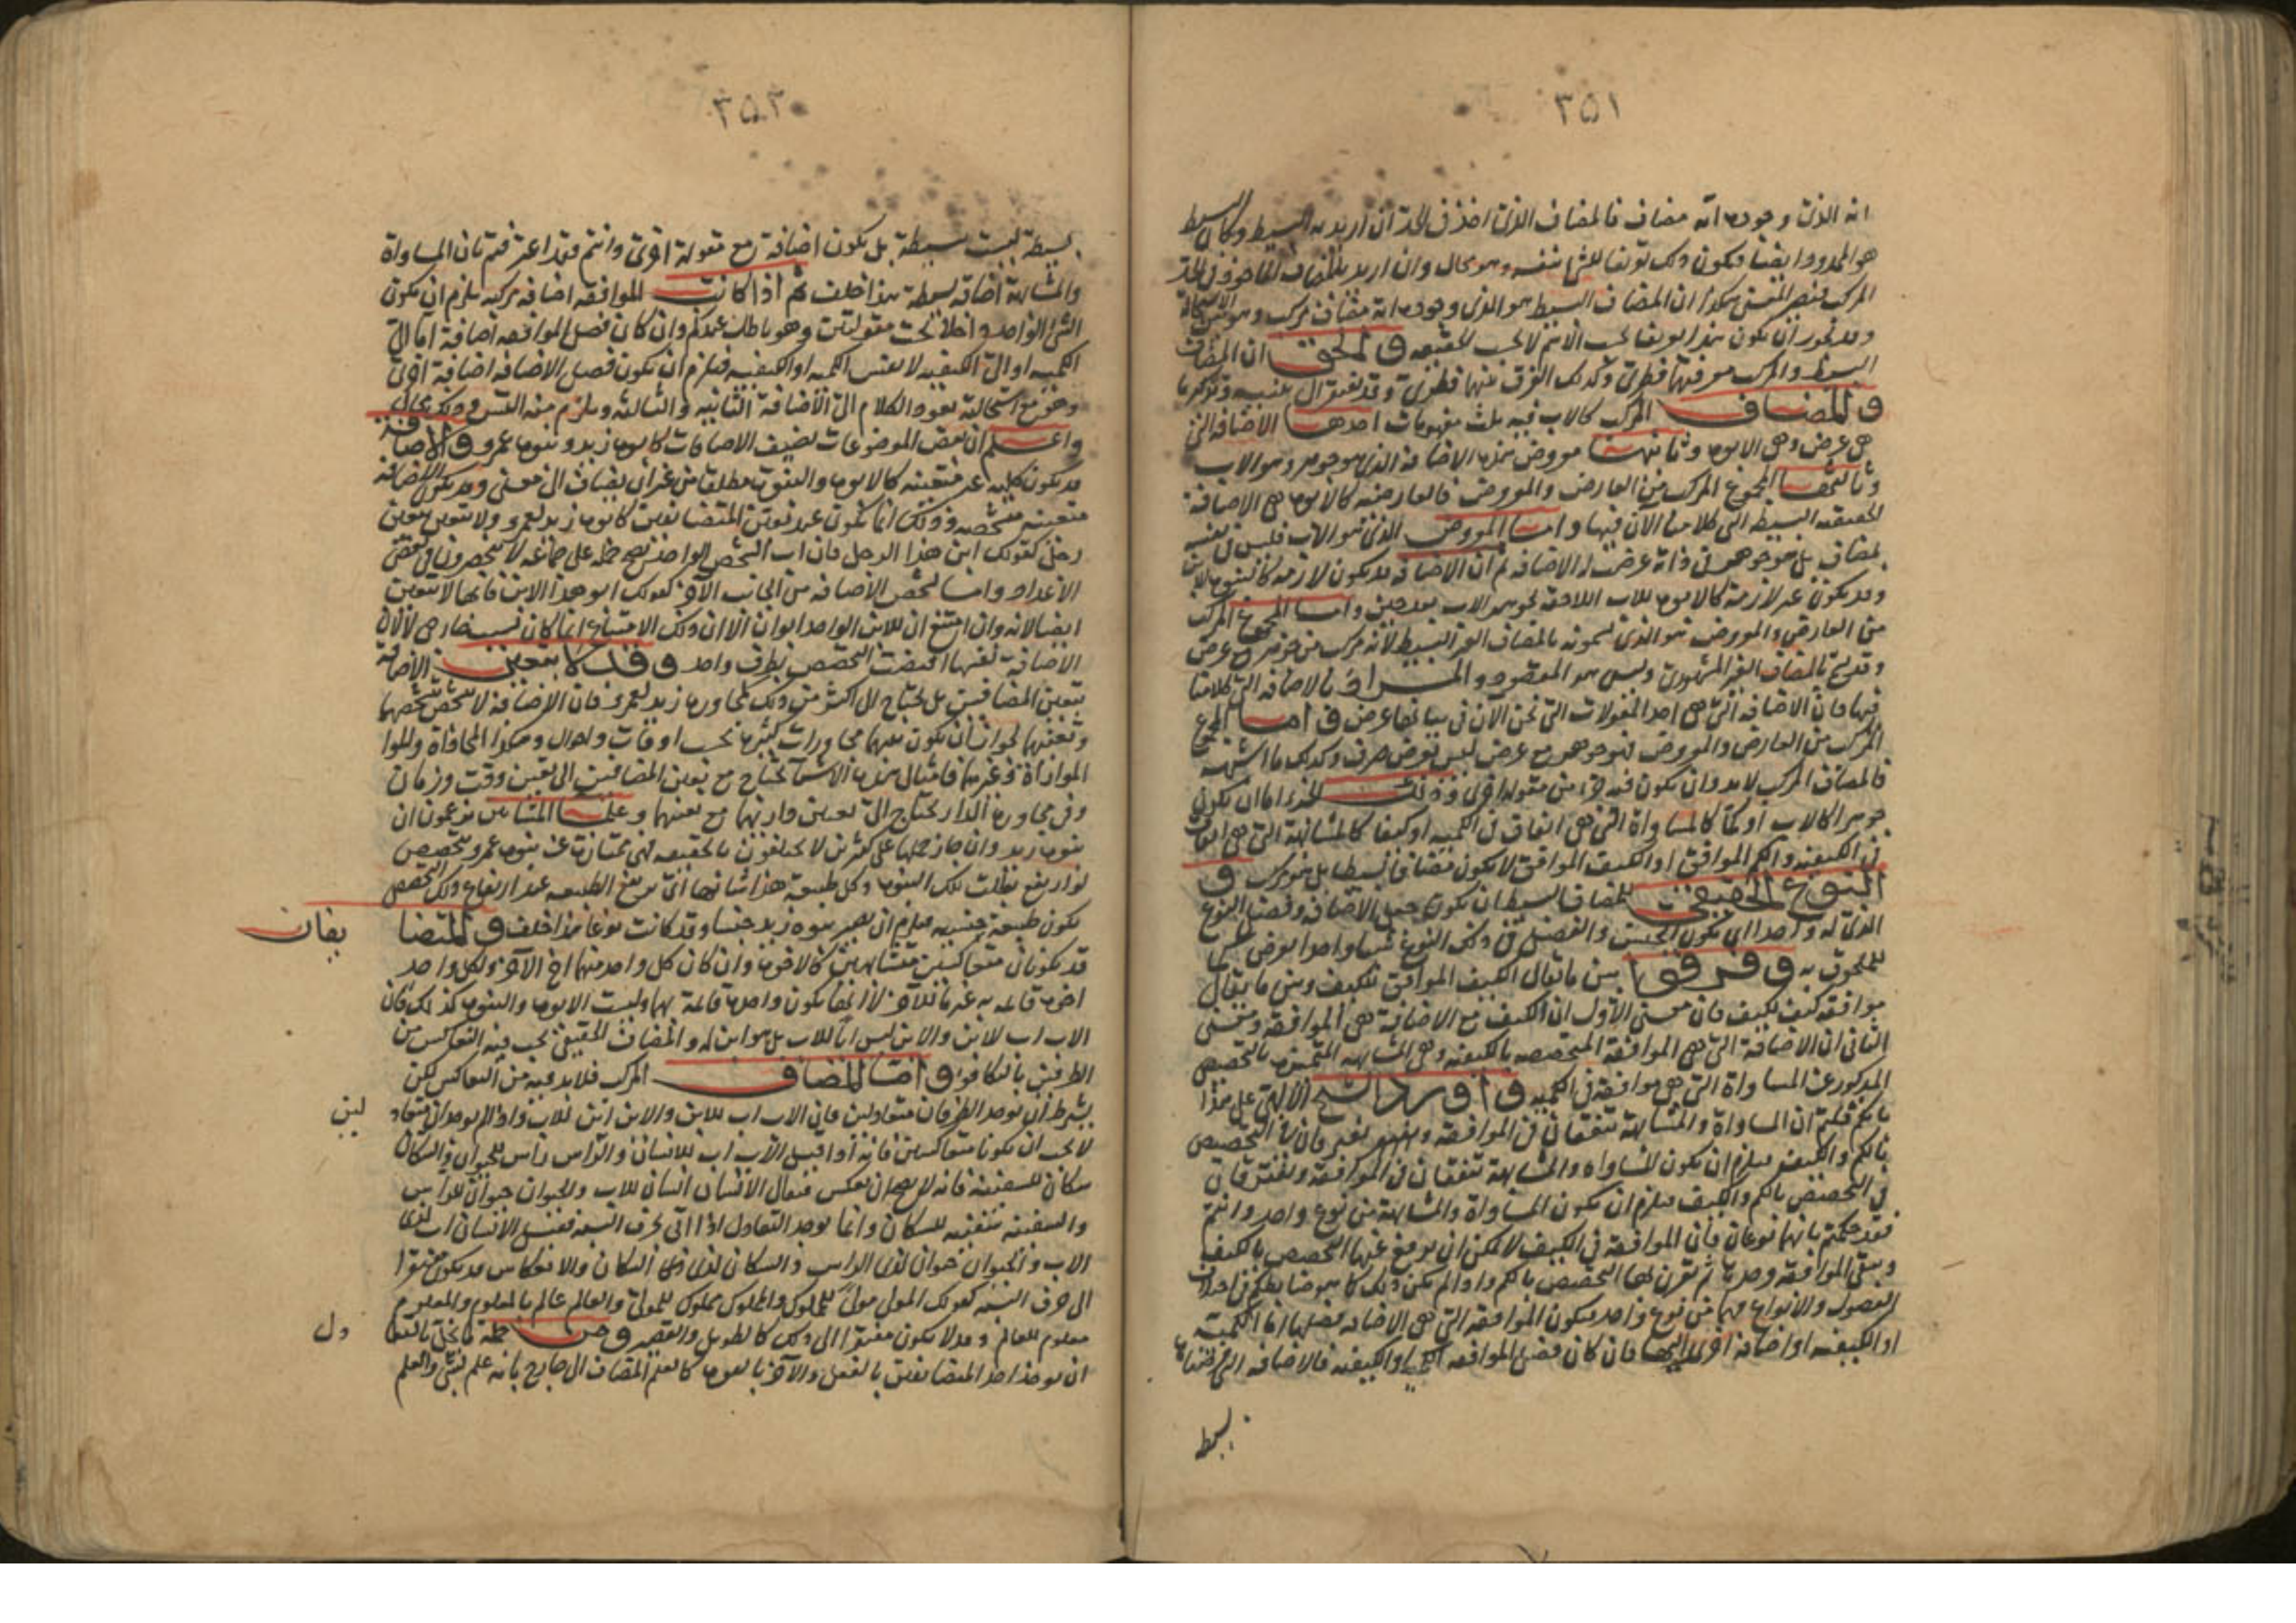 ٣٥١
انه الذى وجوده انه مضاف فالمضاف الذى اخذ فى الحد ان اريد به البسيط وكان البسيط
هو المحدود ايضا فيكون ذلك تعريفا للشئ بنفسه وهو محال وان اريد بالمضاف الماخوذ فى الحد
المركب فيصير المعنى هكذا ان المضاف البسيط هو الذى وجوده انه مضاف مركب وهو بين الاستحالة
وقد يجوز ان يكون هذا تعريفا بحسب الاسم لا بحسب الحقيقة والحق ان المضاف
البسيط والمركب معرفتهما فطرية وكذلك الفرق بينهما فطرى وقد يفتقر الى تنبيه وتذكير ما
والمضاف المركب كالاب فيه ثلث مفهومات احدها الاضافة التى
هى عرض وهى الابوة وثانيها معروض هذه الاضافة الذى هو جوهر وهو الاب
وثالثها المجموع المركب من العارض والمعروض فالعارضة كالابوة هى الاضافة
الحقيقية البسيطة التى كلامنا الآن فيها واما المعروض الذى هو الاب فليس فى نفسه
بمضاف بل هو جوهر فى ذاته عرضت له الاضافة ثم ان الاضافة قد يكون لازمة كالبنوة للابن
وقد يكون غير لازمة كالابوة للاب اللاحقة لجوهر الاب بعد حين واما المجموع المركب
من العارض والمعروض هو الذى يسمونه بالمضاف الغير البسيط لانه مركب من جوهر وعرض
وقد يسمى بالمضاف الغير المشهورى وليس هو المقصود والمراد بالاضافة التى كلامنا
فيها فان الاضافة التى هى احد المقولات التى نحن الآن فى بيانها عرض واما المجموع
المركب من العارض والمعروض فهو جوهر مع عرض ليس بعرض صرف وكذلك ما اشبهه
فالمضاف المركب لا بد وان يكون فيه جزء من مقولة اخرى وذلك الجزء اما ان يكون
جوهرا كالاب او كمّا كالمساواة التى هى اتفاق فى الكمية او كيفا كالمشابهة التى هى اتفاق
فى الكيفية والكم الموافق او الكيف الموافق لا يكون مضافا بسيطا بل هو مركب و
النوع الحقيقى للمضاف البسيط ان يكون جنس الاضافة وفصل النوع
الذى له واحدا اى يكون الجنس والفصل فى ذلك النوع شيئا واحدا يعرض
للملحوق به وفرقوا بين ما يقال الكيف الموافق للكيف وبين ما يقال
موافقة كيف لكيف فان معنى الاول ان الكيف مع الاضافة هى الموافقة ومعنى
الثانى ان الاضافة التى هى الموافقة المتخصصة بالكيفية وهى المشابهة المتميزة بالتخصص
المذكور عن المساواة التى هى موافقة فى الكمية واورد الشيخ الالهى على هذا
بانكم قلتم ان المساواة والمشابهة تتفقان فى الموافقة
بالكم والكيف فيلزم ان يكون المساواة والمشابهة تتفقان فى الموافقة ويفترقان
فى التخصيص بالكم والكيف فيلزم ان يكون المساواة والمشابهة من نوع واحد وانتم
فقد حكمتم بانهما نوعان فان الموافقة فى الكيف لا يمكن ان يرفع عنها التخصص بالكيف
ويبقى الموافقة وحدها ثم تقرن لها التخصص بالكم واذا لم يكن ذلك كما هو ضابطكم فى احداث
الفصول والانواع فهما من نوع واحد فيكون الموافقة التى هى الاضافة فصلها اما الكمية
او الكيفية او اضافة اخرى اليهما فان كان فصل الموافقة الكمية او الكيفية فالاضافة التى
بسيطة
٣٥٢
بسيطة ليست بسيطة بل يكون اضافة مع مقولة اخرى وانتم فقد اعترفتم بان المساواة
والمشابهة اضافة بسيطة هذا خلف ثم اذا كانت الموافقة اضافة مركبة يلزم ان يكون
الشئ الواحد داخلا تحت مقولتين وهو باطل عندكم وان كان فصل الموافقة اضافة اما الى
الكمية او الى الكيفية لا نفس الكمية او الكيفية فيلزم ان يكون فصل الاضافة اضافة اخرى
وهو مع استحالته يعود الكلام الى الاضافة الثانية والثالثة ويلزم منه التسلسل وذلك محال
واعلم ان بعض الموضوعات تضيف الاضافات كابوة زيد وبنوة عمرو والاضافة
قد يكون كلية غير متعينة كالابوة والبنوة مطلقا من غير ان يضاف الى معنى وقد يكون الاضافة
متعينة متشخصة وذلك انما يكون عند تعين المتضايفين كابوة زيد لعمرو ولا يتعين بتعين
رجل كقولك ابن هذا الرجل فان اب الشخص الواحد يصح حمله على جماعة لا ينحصرون فى بعض
الاعداد واما تشخص الاضافة من الجانب الآخر كقولك ابو هذا الابن فانها لا تتعين
ايضا لانه وان امتنع ان للابن الواحد ابوان الا ان ذلك الامتناع انما كان لسبب خارجى لا لان
الاضافة نفسها اقتضت التخصص بطرف واحد وقد لا يتعين الاضافة
بتعين المضافين بل يحتاج الى اكثر من ذلك كمجاورة زيد لعمرو فان الاضافة لا تتشخص بتشخصهما
وتعينهما لجواز ان يكون بينهما مجاورات كثيرة بحسب اوقات واحوال وهكذا المحاذاة والموا
الموازاة وغيرها فامثال هذه الاشياء تحتاج مع تعين المضافين الى تعين وقت وزمان
وفى مجاورة الدار يحتاج الى تعين داريهما مع تعينهما وعلماء المشائين يزعمون ان
بنوة زيد وان جاز حملها على كثيرين لا يختلفون بالحقيقة فهى ممتازة عن بنوة عمرو بتخصص
لو ارتفع بطلت تلك البنوة وكل طبيعة هذا شانها اى يرتفع الطبيعة عند ارتفاع ذلك التخصص
يكون طبيعة جنسية فيلزم ان يصير بنوة زيد جنسا وقد كانت نوعا هذا خلف والمتضا يفان
قد يكونان متعاكسين متشابهين كالاخوة وان كان كل واحد منهما اخ الآخر ولكل واحد
اخوة قائمة به غير ما للآخر لا انها يكون واحدة قائمة بهما وليست الابوة والبنوة كذلك فان
الاب اب للابن والابن ليس ابا للاب بل هو ابن له والمضاف الحقيقى يجب فيه التعاكس من
الطرفين بالتكافؤ واما المضاف المركب فلا بد فيه من التعاكس لكن
بشرط ان يوجد الطرفان متعادلين فان الاب اب للابن والابن ابن للاب واذا لم يوجدا متعاد لين
لا يجب ان يكونا متعاكسين فانه اذا قيل الاب اب للانسان والرأس رأس للحيوان والسكان
سكان للسفينة فانه لا يصح ان يعكس فيقال الانسان انسان للاب والحيوان حيوان للرأس
والسفينة سفينة للسكان وانما يوجد التعادل اذا اتى بحرف النسبة فقيل الانسان انسان لذى
الاب والحيوان حيوان لذى الرأس ذا السكان لذى ذى السكان والانعكاس قد يكون مفتقرا
الى حرف النسبة كقولك المولى مولى للمملوك والمملوك مملوك للمولى والعالم عالم بالمعلوم والمعلوم
معلوم للعالم وقد لا يكون مفتقرا الى ذلك كالطويل والقصير ومن جملة ما يخل بالتعا دل
ان يوخذ احد المتضايفين بالفعل والآخر بالقوة كالعلم المضاف الى خارج بانه علم لشئ والعلم